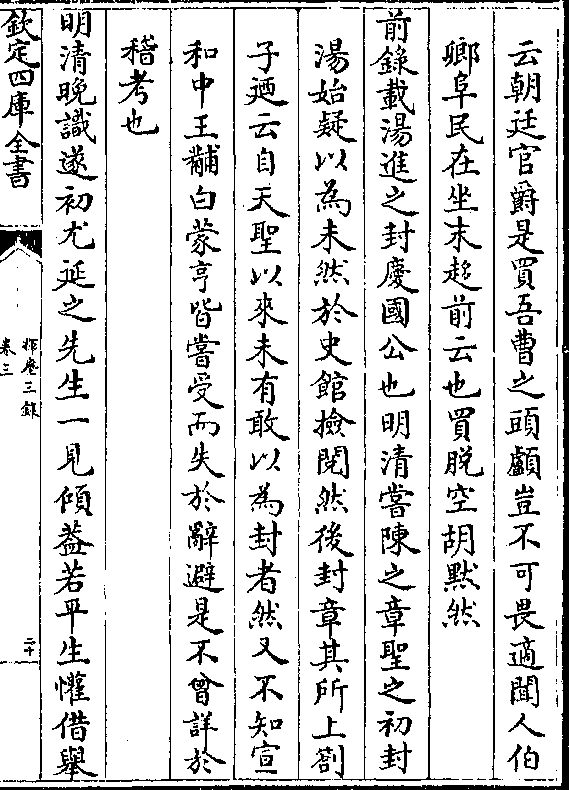 云朝廷官爵是買吾曹之頭顱豈不可畏適聞人伯
卿阜民在坐末趨前云也買脱空胡黙然
前錄載湯進之封慶國公也明清嘗陳之章聖之初封
湯始疑以為未然於史館撿閲然後封章其所上劄
子迺云自天聖以來未有敢以為封者然又不知宣
和中王黼白蒙亨皆嘗受而失於辭避是不曾詳於
稽考也
明清晚識遂初尤延之先生一見傾葢若平生懽借舉
欽定四庫全書
揮麈三錄
卷三
二十